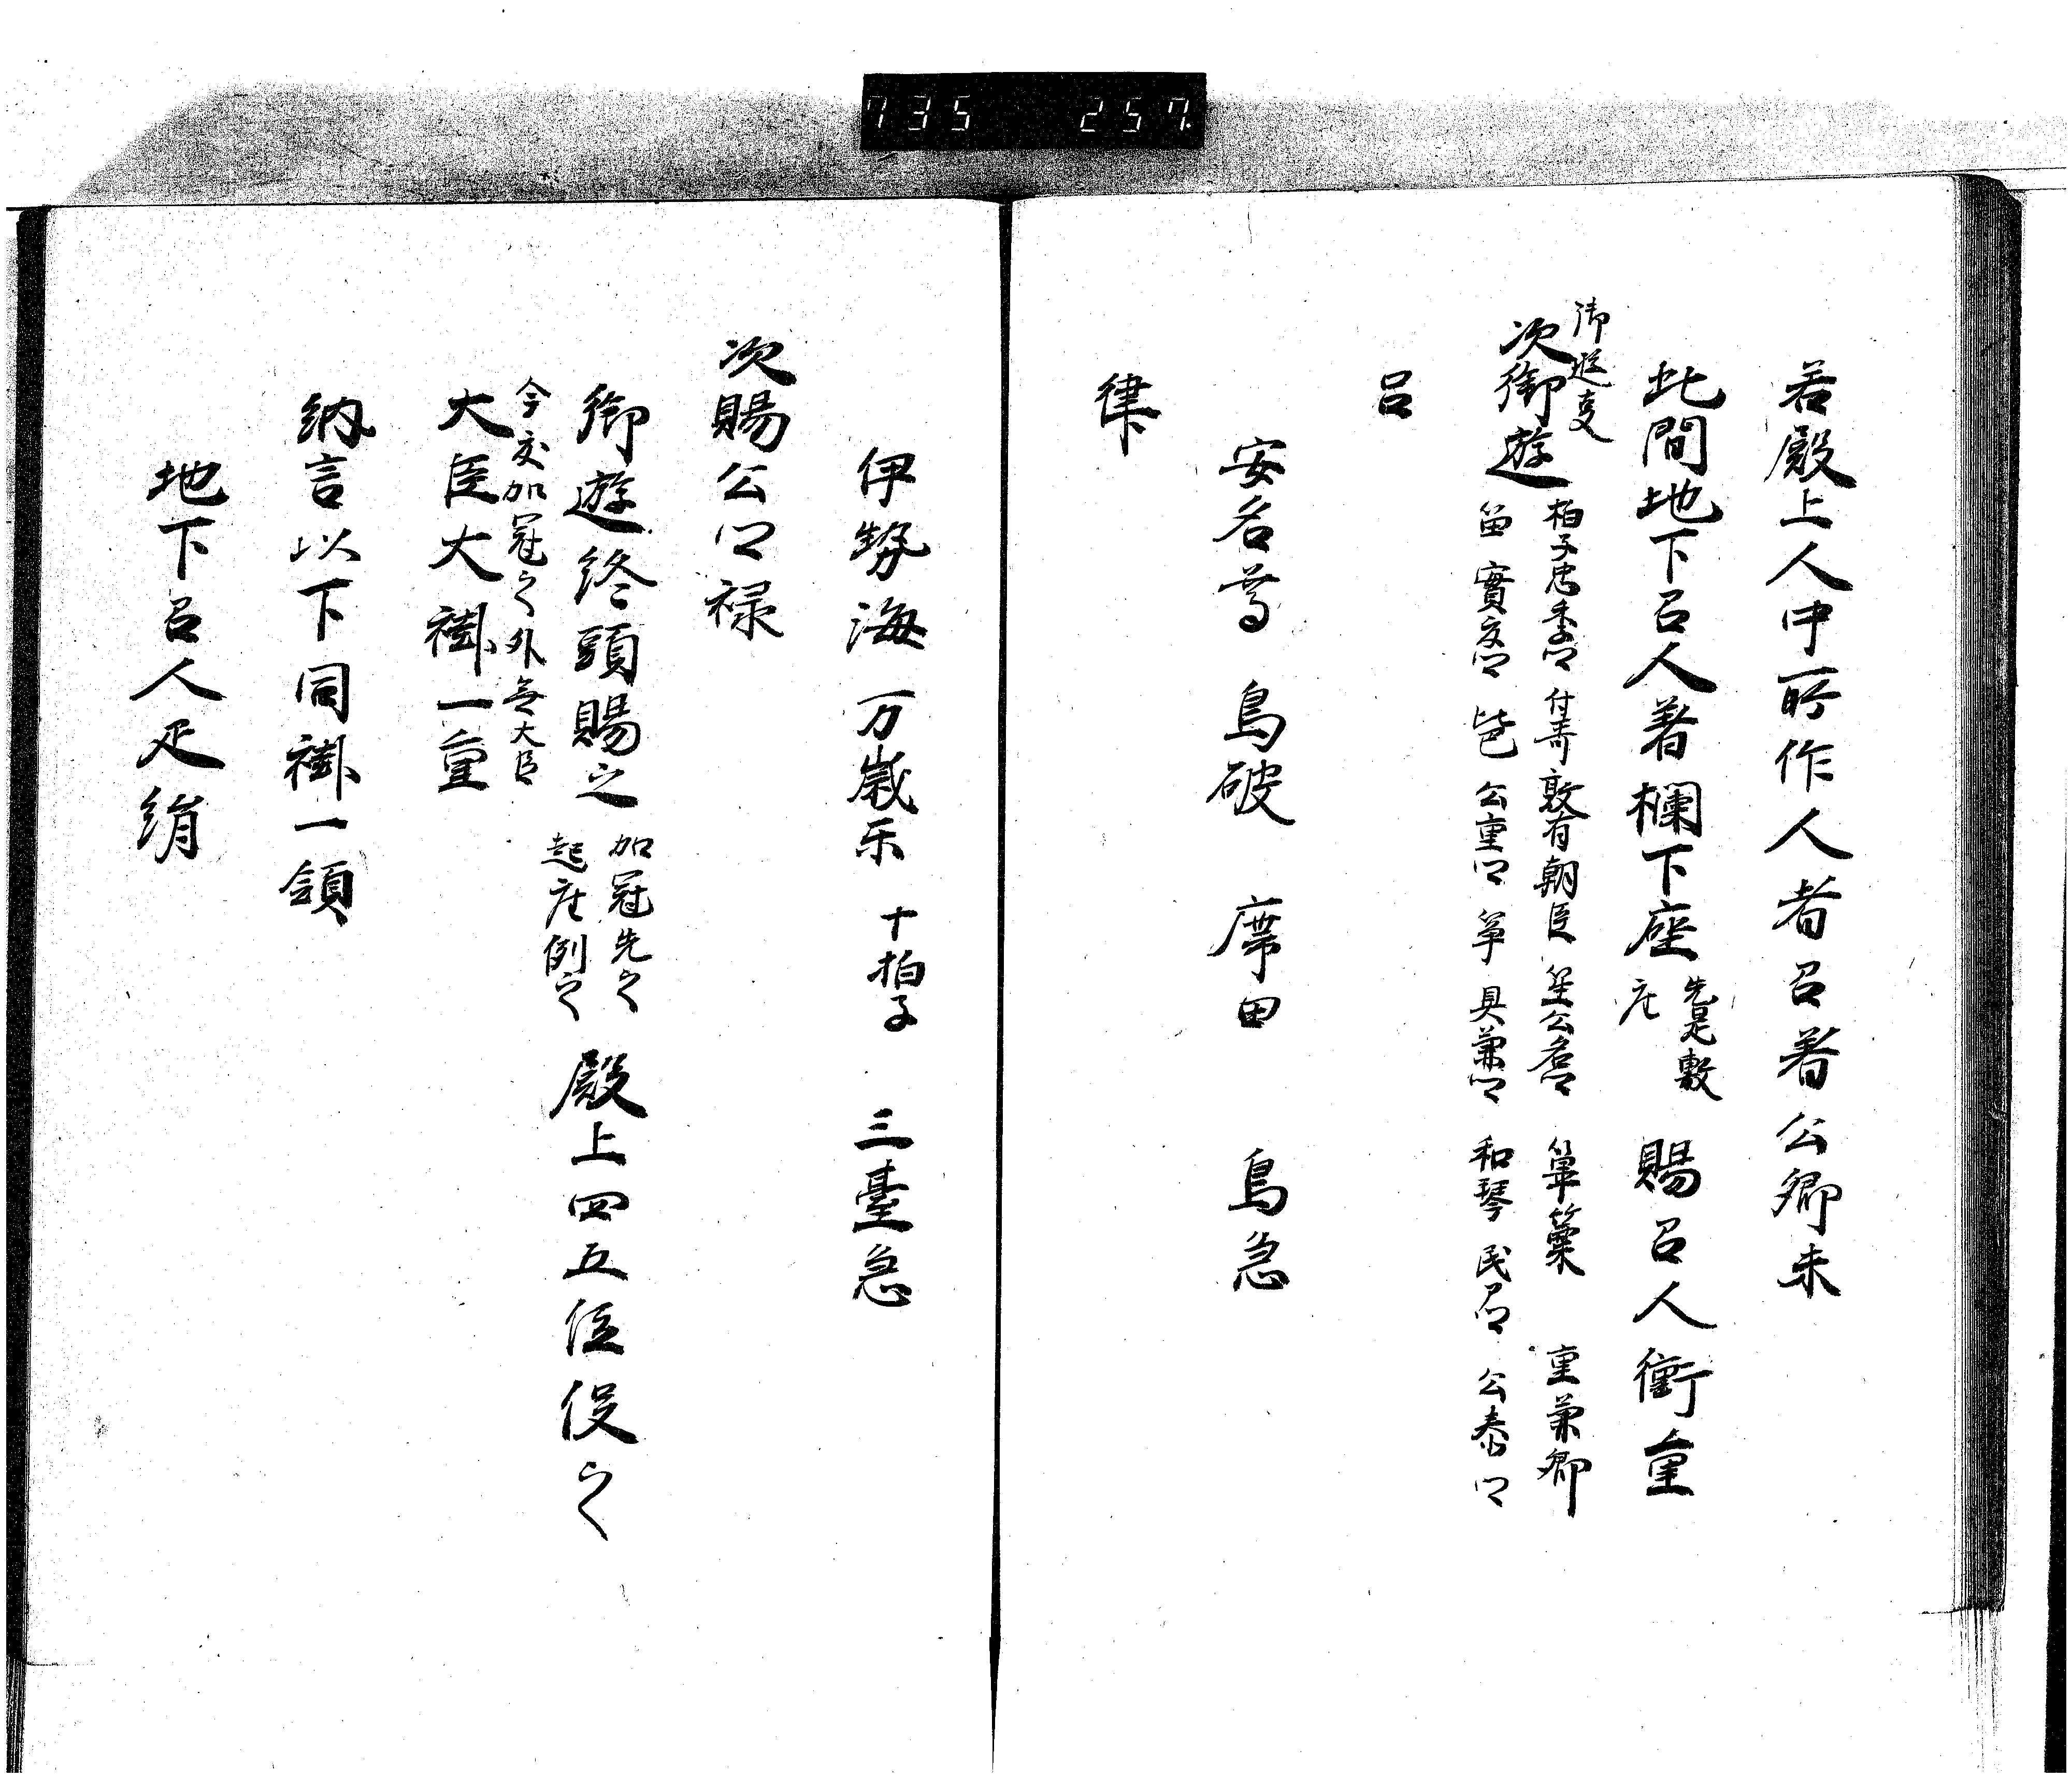 735 257
若殿上人中所作人者召著公卿末
此間地下召人著欄下座 先是敷座 賜召人衝重
御遊事
次御遊 拍子忠季卿 付哥敦有朝臣 笙公名卿 篳篥 重兼卿
笛 實文卿 琵琶 公重卿 箏 具兼卿 和琴 公泰卿
呂
安名尊 鳥破 席田 鳥急
律
伊勢海 万歳乐 十拍子 三臺急
次賜公卿禄
御遊終頭賜之 加冠先之起座例之 殿上四五位役之
今度加冠之外無大臣
大臣大褂一重
納言以下同褂一領
地下召人疋絹